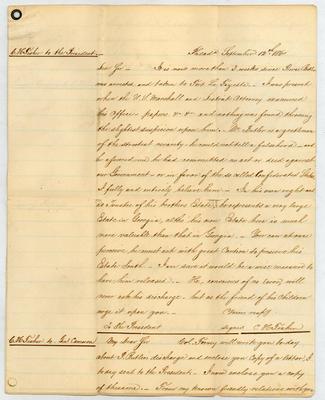 C. H. Fisher to the President
Philad.a September 12th 1861
Dear Sir - It is now more than 3 weeks since Pierce Butler
was arrested, and taken to Fort La Fayette - I was present
when the U. S. Marshall and District Attorney examined
his Office - papers &c &c - and nothing was found throwing
the slightest suspicion upon him. Mr. Butler is a gentleman
of the strictest veracity - he could not tell a falsehood - and
he assured me he had committed no act or deed against
our Government - or in favor of the so called Confederated States
I fully and entirely believe him - In his own right and
as Trustee of his brother Estate, he represents a very large
Estate in Georgia, altho his own Estate here is much
more valuable than that in Georgia - You can at once
perceive, he must act with great Caution to preserve his
Estate South - I am sure it would be a wise measure to
have him released - He, conscious of no wrong will
not ask his discharge - but as the friend of his Children
urge it upon you -
Yours resply
To the President signed C. H. Fisher
C. H. Fisher to Genl Cameron
My dear Sir Col. Forney will write you today
about P. Butlers discharge and enclose you Copy of a letter I
today sent to the President - I now enclose you a copy
of the same - From my known friendly relations with you